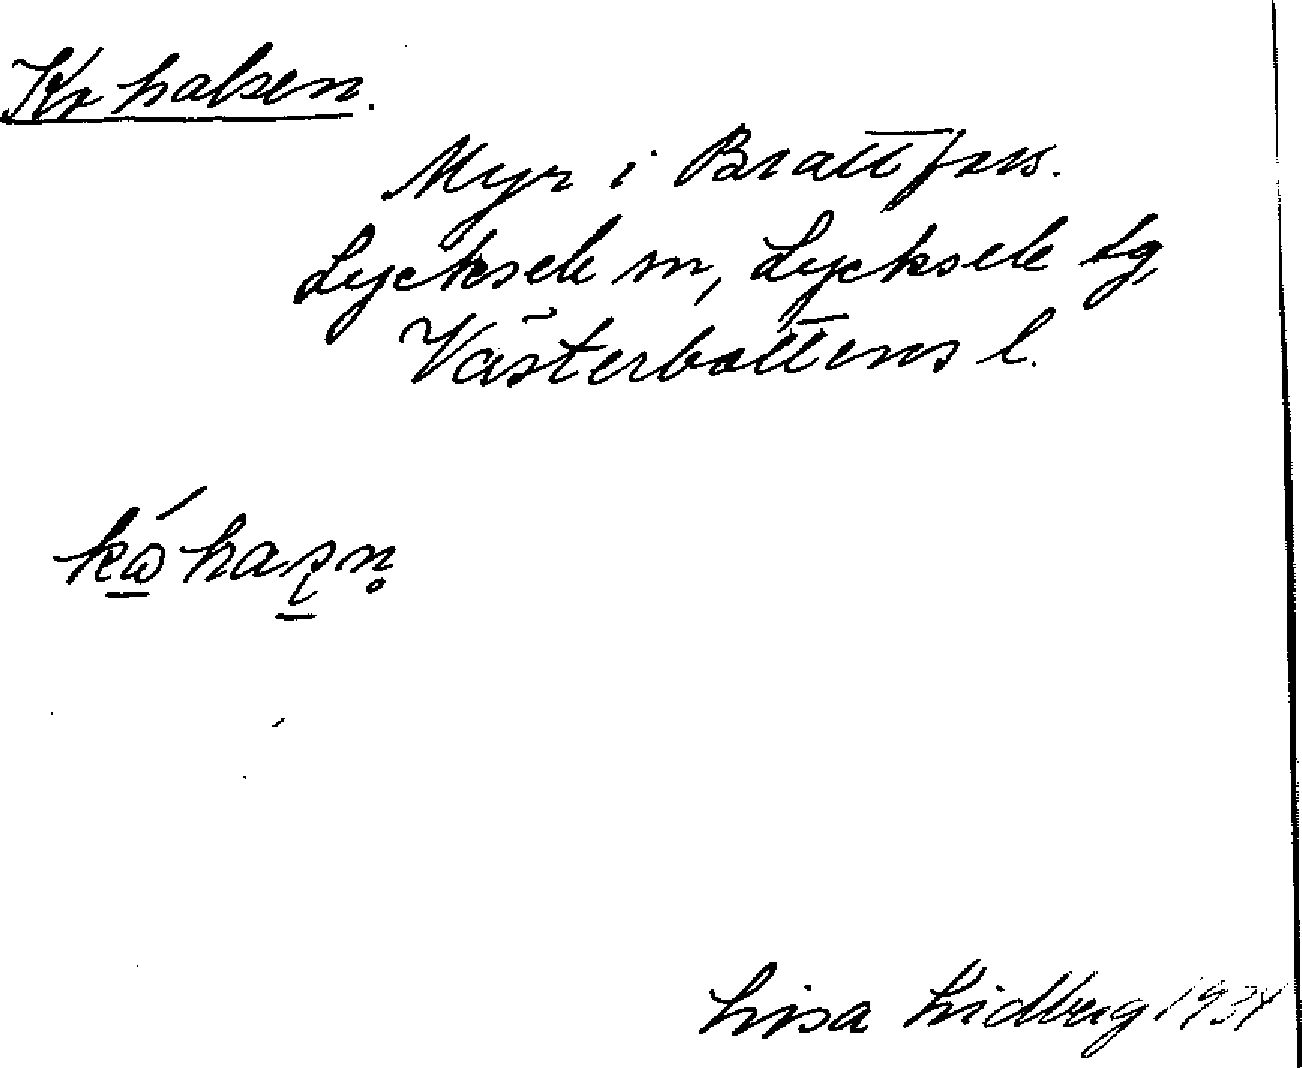 Kr halsen.
Myr i Brattfors.
Lycksele sn, Lycksele tg,
Västerbottens l.
Lisa Lidberg 1934